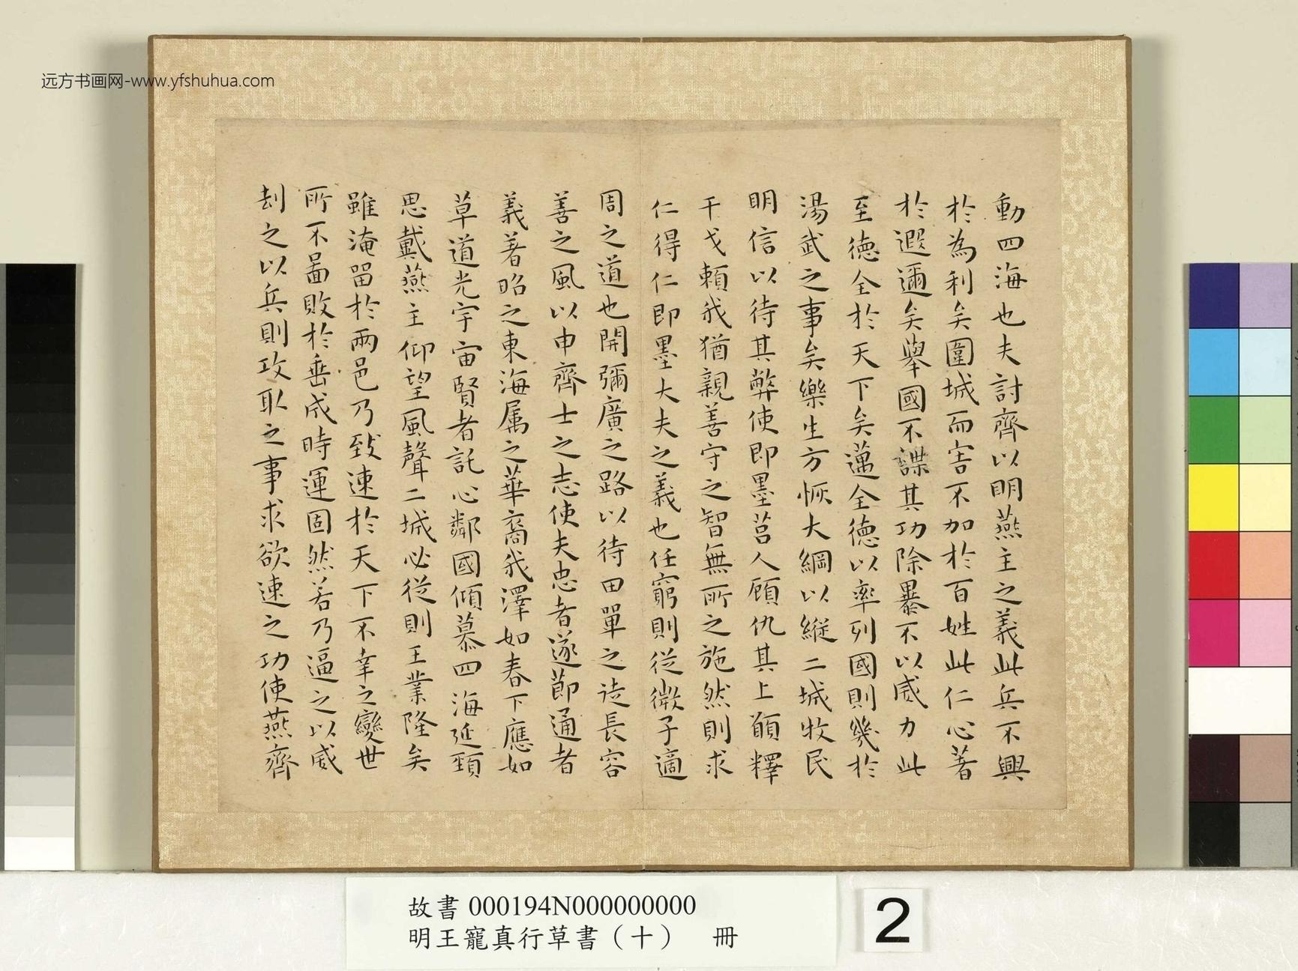 远方书画网-www.yfshuhua.com
動四海也夫討齊以明燕主之義此兵不興
於為利矣圍城而害不加於百姓此仁心著
於遐邇矣舉國不謀其功除暴不以威力此
至德全於天下矣邁全德以率列國則幾於
湯武之事矣樂生方恢大綱以縱二城牧民
明信以待其弊使即墨莒人顧仇其上願釋
干戈賴我猶親善守之智無所之施然則求
仁得仁即墨大夫之義也任窮則從微子適
周之道也開彌廣之路以待田單之徒長容
善之風以申齊士之志使夫忠者遂節通者
義著昭之東海属之華裔我澤如春下應如
草道光宇宙賢者託心鄰國傾慕四海延頸
思戴燕主仰望風聲二城必從則王業隆矣
雖淹留於兩邑乃致速於天下不幸之變世
所不啚敗於垂成時運固然若乃逼之以威
刦之以兵則攻取之事求欲速之功使燕齊
故書 000194N000000000
明王寵真行草書（十） 冊
2